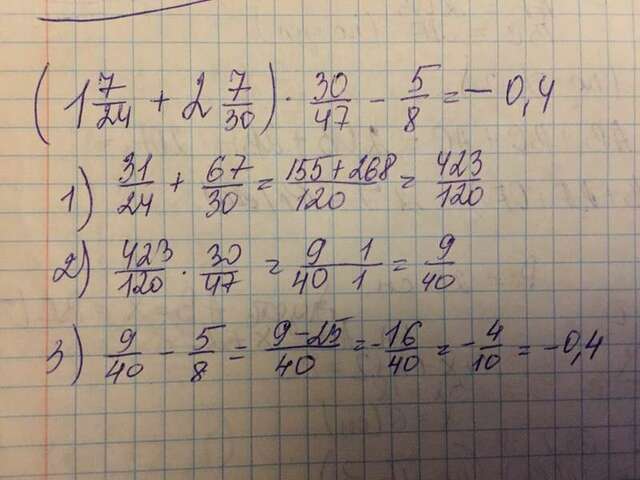 (1 7/24 + 2 7/30) · 30/47 − 5/8 = − 0,4
1) 31/24 + 67/30 = (155+268)/120 = 423/120
2) 423/120 · 30/47 = (9 1)/(40 1) = 9/40
3) 9/40 − 5/8 = (9−25)/40 = −16/40 = −4/10 = −0,4